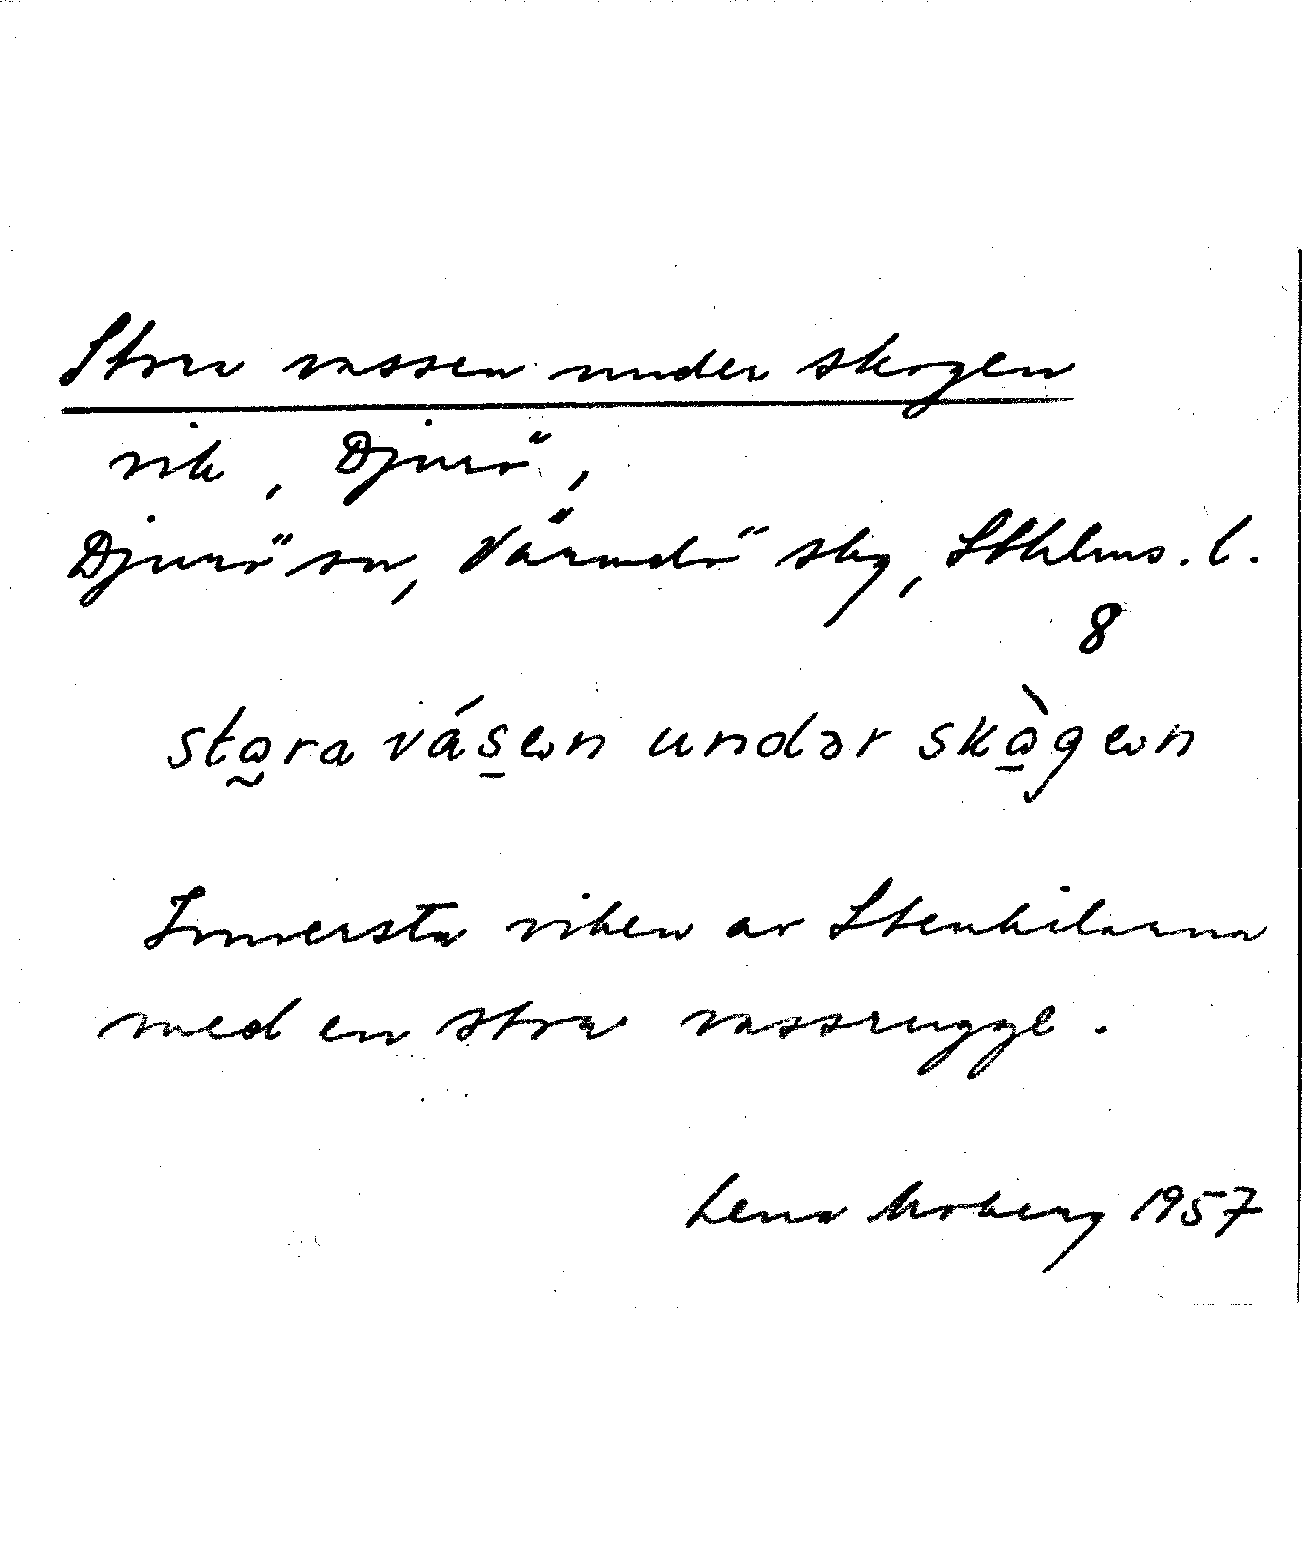 Stora vassen under skogen
vik, Djurö,
Djurö sn, Värmdö skg, Sthlms. l.
8
stọra vás̲en undər skò̲gen
Innersta viken av Stenkilarna
med en stor vassrugge.
Lena Moberg 1957